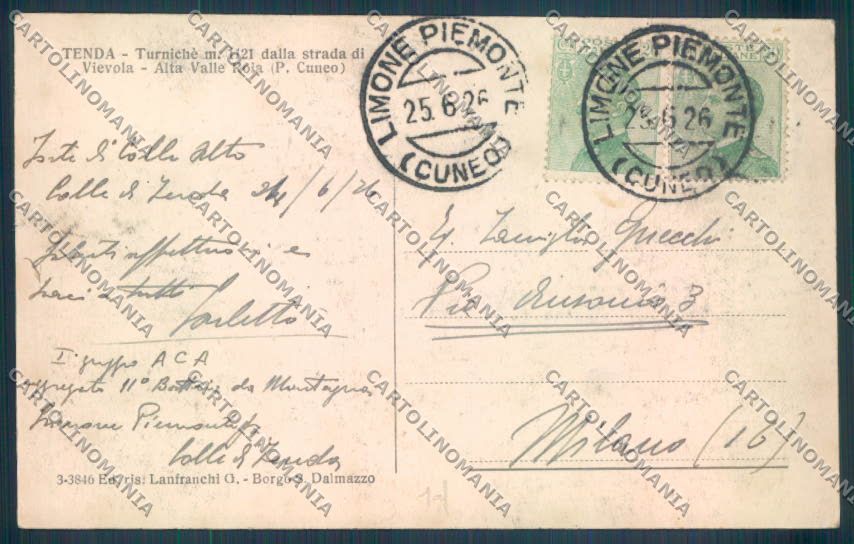 TENDA - Turnichè m. 1121 dalla strada di
Vievola - Alta Valle Roia (P. Cuneo)
LIMONE PIEMONTE
25.6.26
(CUNEO)
LIMONE PIEMONTE
25.6.26
(CUNEO)
Forte di Colle Alto
Colle di Tenda 24/6/26
Saluti affettuosi e
baci a tutti
Carletto
I° gruppo A C A
aggregato 11° Batteria da Montagna
Limone Piemonte
Colle di Tenda
Famiglia
Via Ausonio 3
Milano (16)
3-3846 Ed. ris. Lanfranchi G. - Borgo S. Dalmazzo
CARTOLINOMANIA